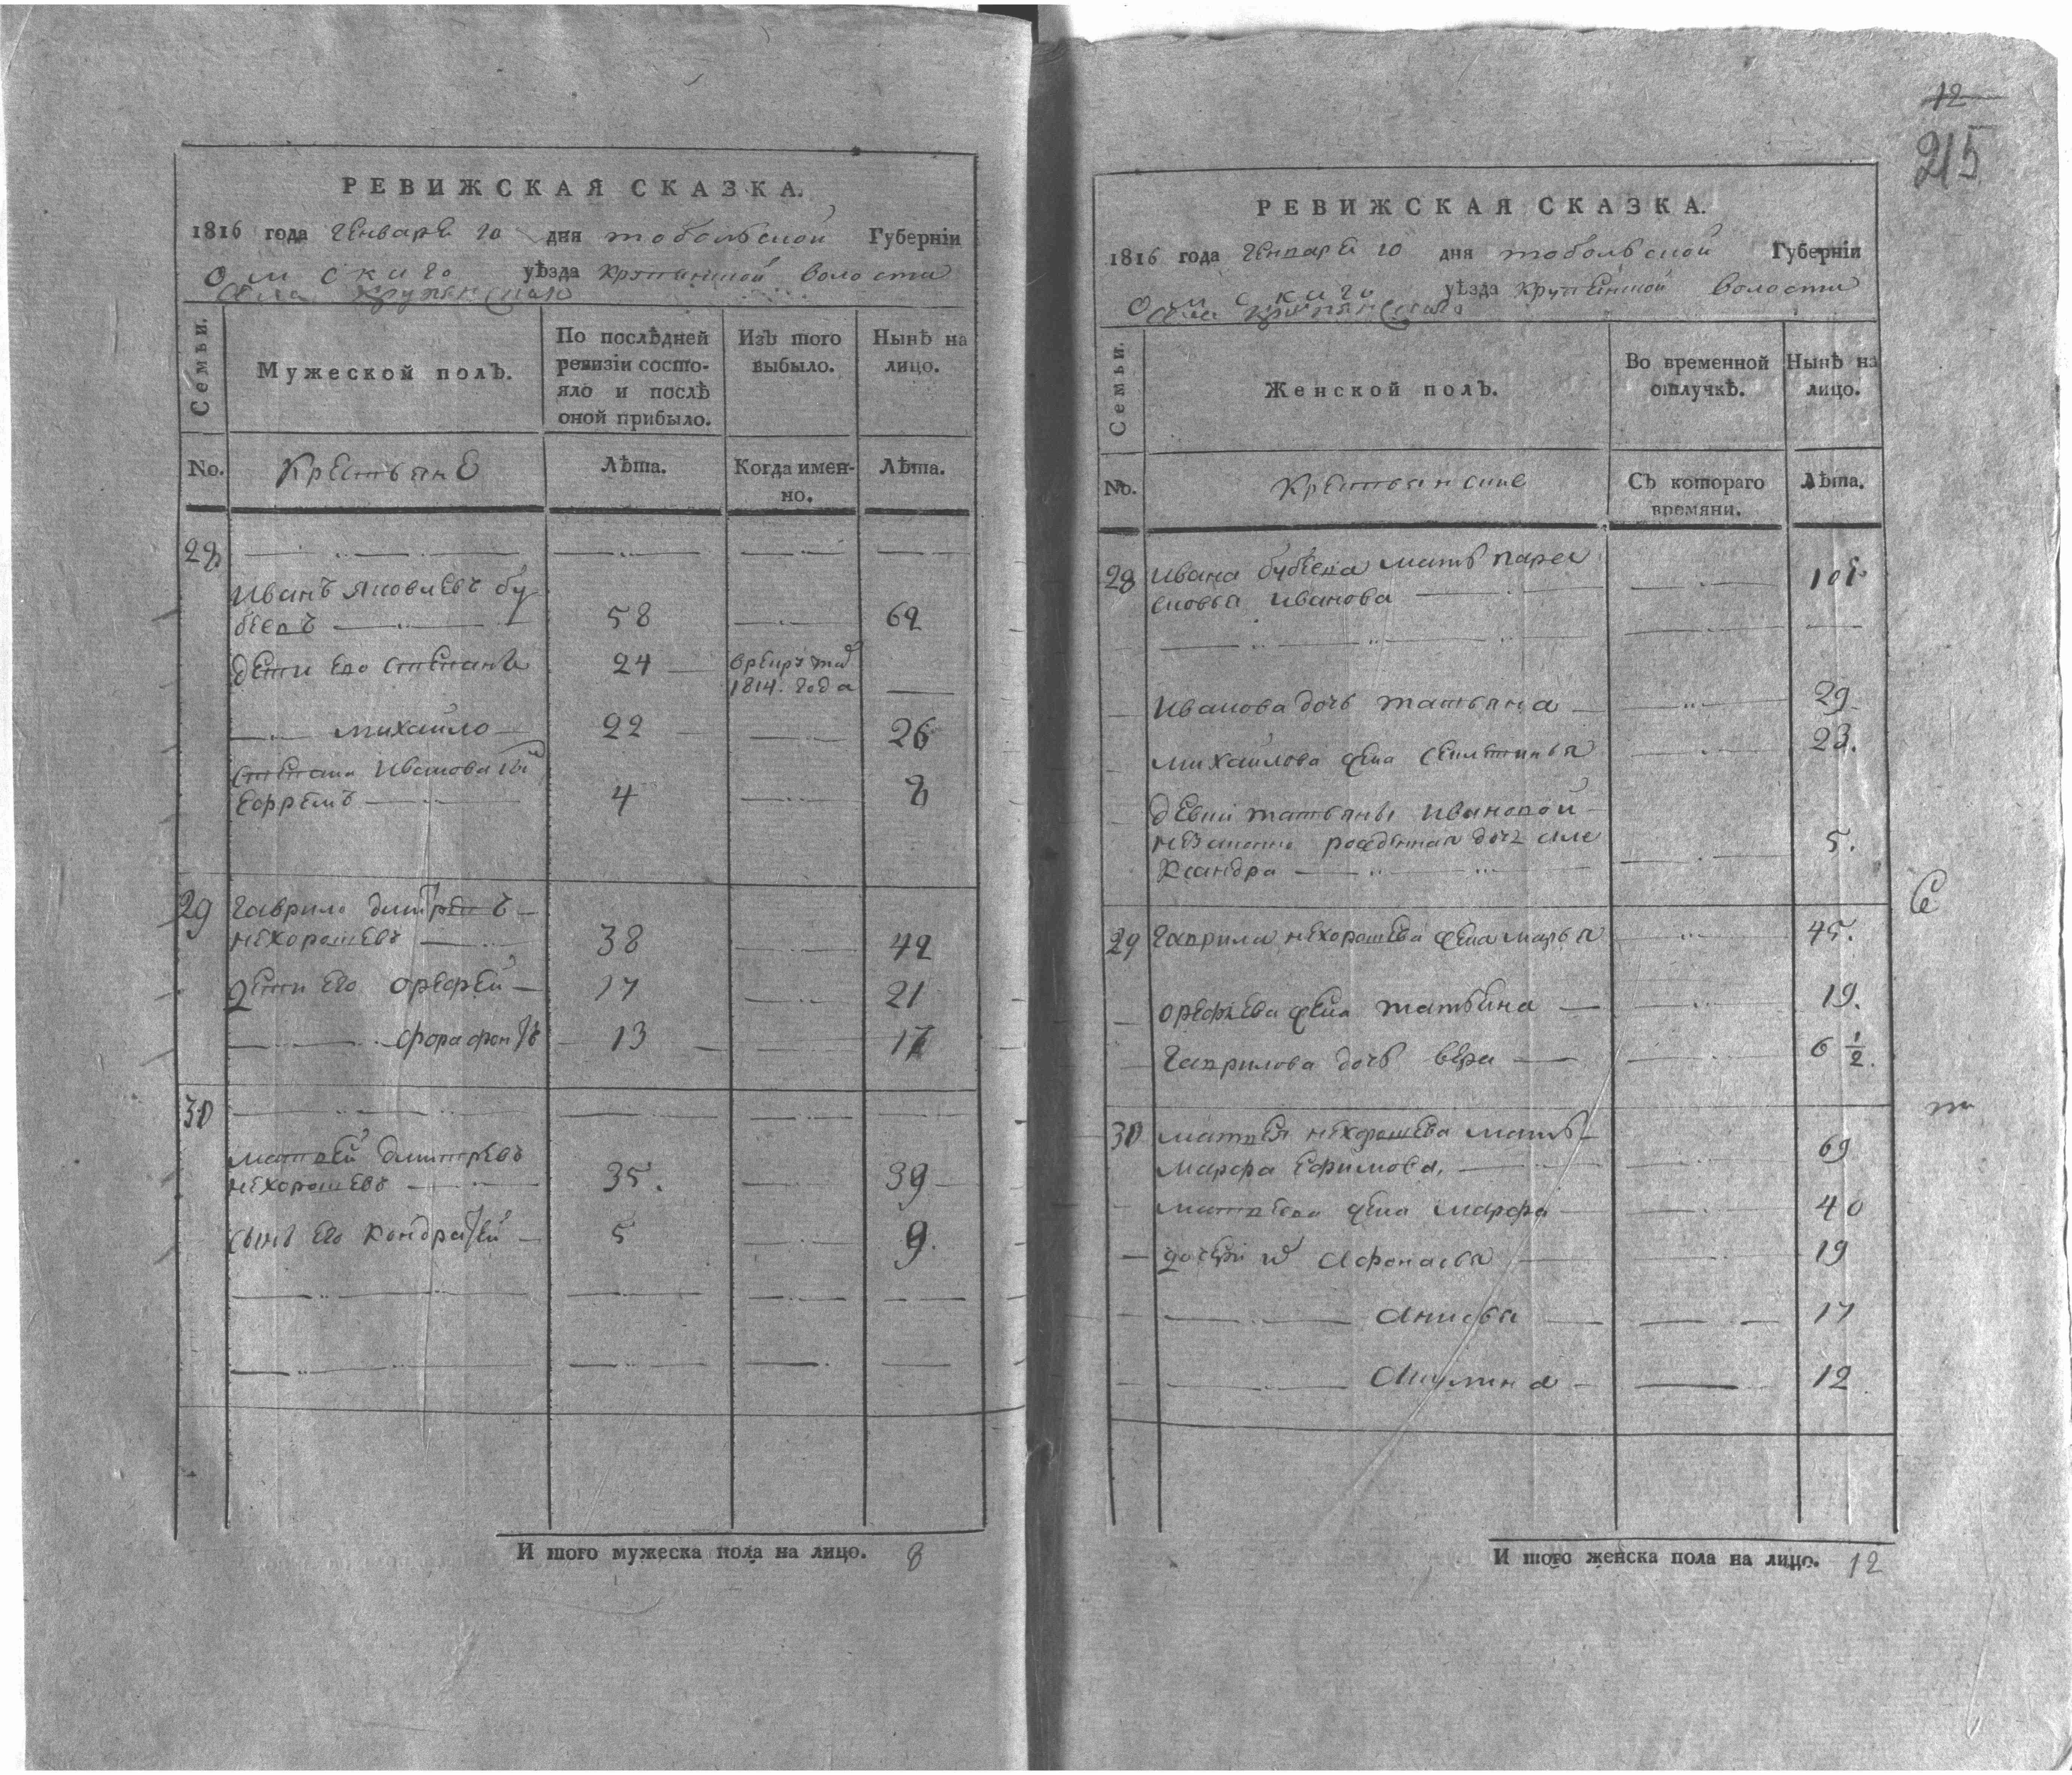 РЕВИЖСКАЯ СКАЗКА.
1816 года генваря 10 дня тобольской Губерніи
омскаго уѣзда крупинской волости
села крупянскаго
Семьи.
Мужеской полъ.
По послѣдней ревизіи состо-
яло и послѣ
оной прибыло.
Изъ того
выбыло.
Нынѣ на
лицо.
No.
Крестьяне
Лѣта.
Когда имен-
но.
Лѣта.
28
Иванъ Яковлевъ бу
58 62
дети его степанъ 24 врекруты
1814. года
михайло 22 26
степана Иванова сынъ
ефремъ 4 8
29 гаврило дмитревъ
нехорошевъ 38 42
дети его орефей 17 21
форафонтъ 13 17
30
матвей дмитревъ
нехорошевъ 35. 39
сынъ его кондратей 5 9.
И того мужеска пола на лицо. 8
12
215
РЕВИЖСКАЯ СКАЗКА.
1816 года генваря 10 дня тобольской Губерніи
омскаго уѣзда крупинской волости
села крупянскаго
Семьи.
Женской полъ.
Во временной
отлучкѣ.
Нынѣ на
лицо.
No.
крестьянские
Съ котораго
времяни.
Лѣта.
28 Ивана мать парас
ковья иванова
Иванова дочь татьяна 29
михайлова жена 23.
девки татьяны ивановой
незаконно рожденная дочь але
ксандра 5.
29 гаврила нехорошева жена марья 45.
орефьева жена татьяна 19.
гаврилова дочь вера 6 1/2.
30 матвея нехорошева мать
марфа ефимова, 69
матвеева жена марфа 40
дочери их афонасья 19
анисья 17
акулина 12
И того женска пола на лицо. 12